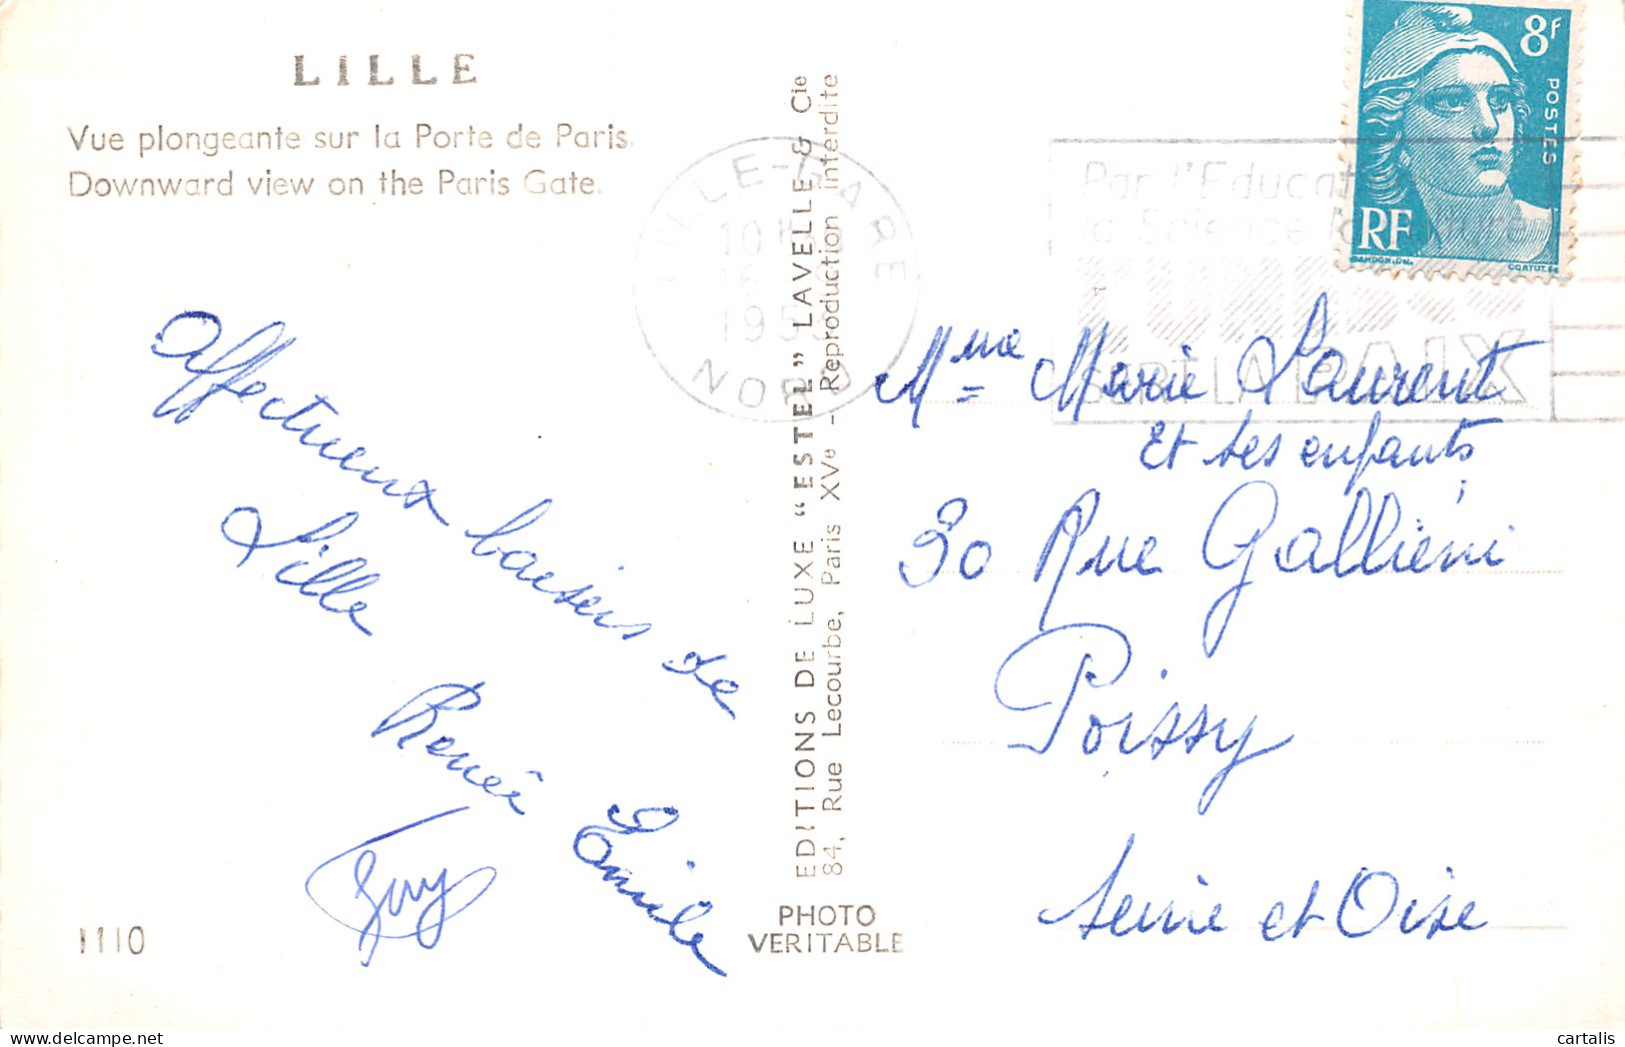 LILLE
Vue plongeante sur la Porte de Paris.
Downward view on the Paris Gate.
Affectueux baisers de
Lille
Renée Emile
Guy
1110
EDITIONS DE LUXE "ESTEL" LAVELLE & Cie
84, Rue Lecourbe, Paris XVe - Reproduction interdite
PHOTO
VERITABLE
LILLE-GARE
10H
195
NORD
Par l'Educat
la Science
SERT LA PAIX
8F
POSTES
RF
GANDON.DEL.
CORTOT.SC
Mme Marie Laurent
Et ses enfants
30 Rue Galliéni
Poissy
Seine et Oise
cartalis